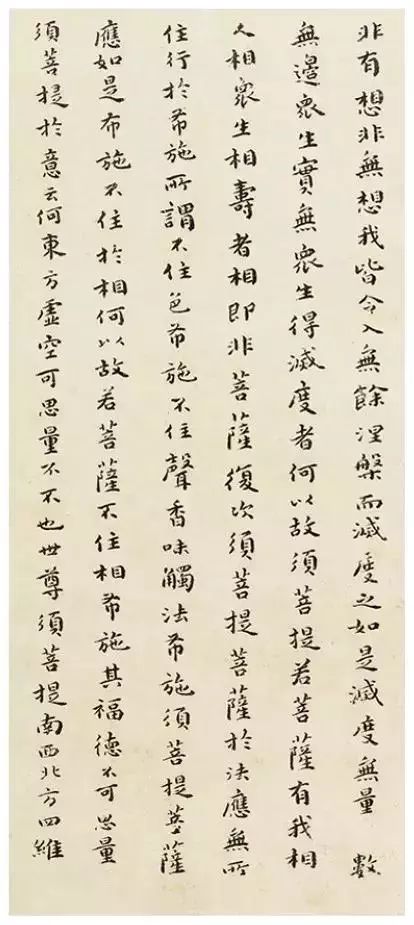 非有想非無想我皆令入無餘涅槃而滅度之如是滅度無量 數
無邊眾生實無眾生得滅度者何以故須菩提若菩薩有我相
人相眾生相壽者相即非菩薩復次須菩提菩薩於法應無所
住行於布施所謂不住色布施不住聲香味觸法布施須菩提菩薩
應如是布施不住於相何以故若菩薩不住相布施其福德不可思量
須菩提於意云何東方虛空可思量不不也世尊須菩提南西北方四維